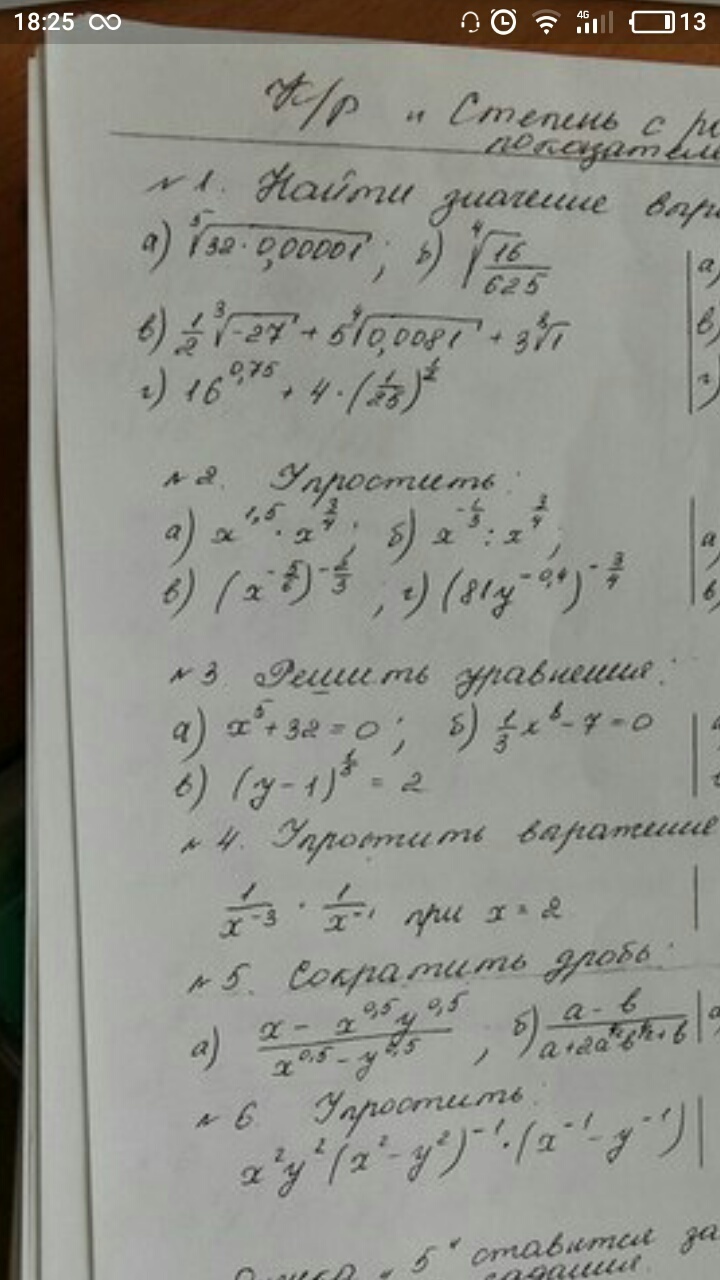 18:25 4G 13
К/р " Степень с
№1. Найти значение
а) ⁵√(32·0,00001); б) ⁴√(16/625)
в) 1/2 ³√(-27) + 5 ⁴√(0,0081) + 3 ³√1
г) 16^0,75 + 4·(1/25)^(1/2)
№2. Упростить:
а) x^1,5 · x^(3/4); б) x^(-1/3) : x^(3/4);
в) (x^(-5/6))^(-2/3), г) (81y^(-0,4))^(-3/4)
№3. Решить уравнения:
а) x^5 + 32 = 0; б) 1/3 x^6 - 7 = 0
в) (y - 1)^(1/3) = 2
№4. Упростить выражение
1/x^(-3) · 1/x^(-1) при x = 2
№5. Сократить дробь:
а) (x - x^0,5 y^0,5)/(x^0,5 - y^0,5), б) (a - b)/(a + 2a^(1/2) b^(1/2) + b)
№6 Упростить:
x²y²(x² - y²)^(-1) · (x^(-1) - y^(-1))
"5" ставится за
задания.